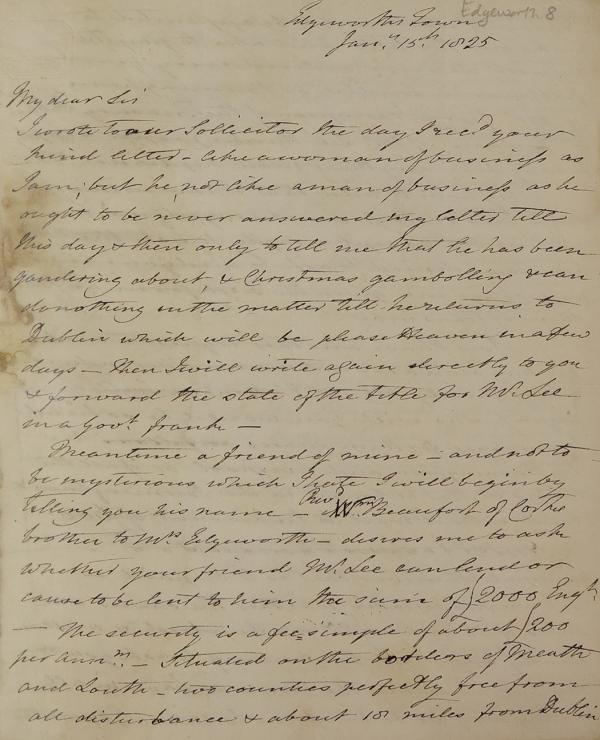 Edgeworth. 8
Edgeworths Town
Jan.y 15th 1825
My dear Sir
I wrote to our Sollicitor the day I recd your
kind letter – like a woman of business as
I am; but he, not like a man of business as he
ought to be never answered my letter till
this day & then only to tell me that he has been
gandering about, & Christmas gambolling & can
do nothing in the matter till he returns to
Dublin which will be please Heaven in a few
days – Then I will write again directly to you
& forward the state of the title for Mr. Lee
in a Govt. frank –
Meantime a friend of mine – and not to
be mysterious which I hate I will begin by
telling you his name – Revd Wm. Beaufort of Corke
brother to Mrs Edgeworth – desires me to ask
whether your friend Mr. Lee can lend or
cause to be lent to him the sum of £2000 Engh.
– The security is a fee=simple of about £200
per annm. – Situated on the borders of Meath
and Louth – two counties perfectly free from
all disturbance & about 18 miles from Dublin